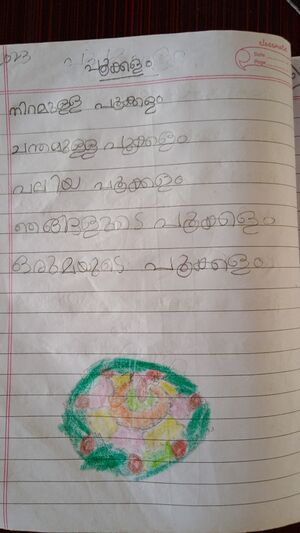 2023
classmate
Date
Page
പൂക്കളം
നിറമുള്ള പൂക്കളം
ചന്തമുള്ള പൂക്കളം
വലിയ പൂക്കളം
ഞങ്ങളുടെ പൂക്കളം
ഒരുമയുടെ പൂക്കളം